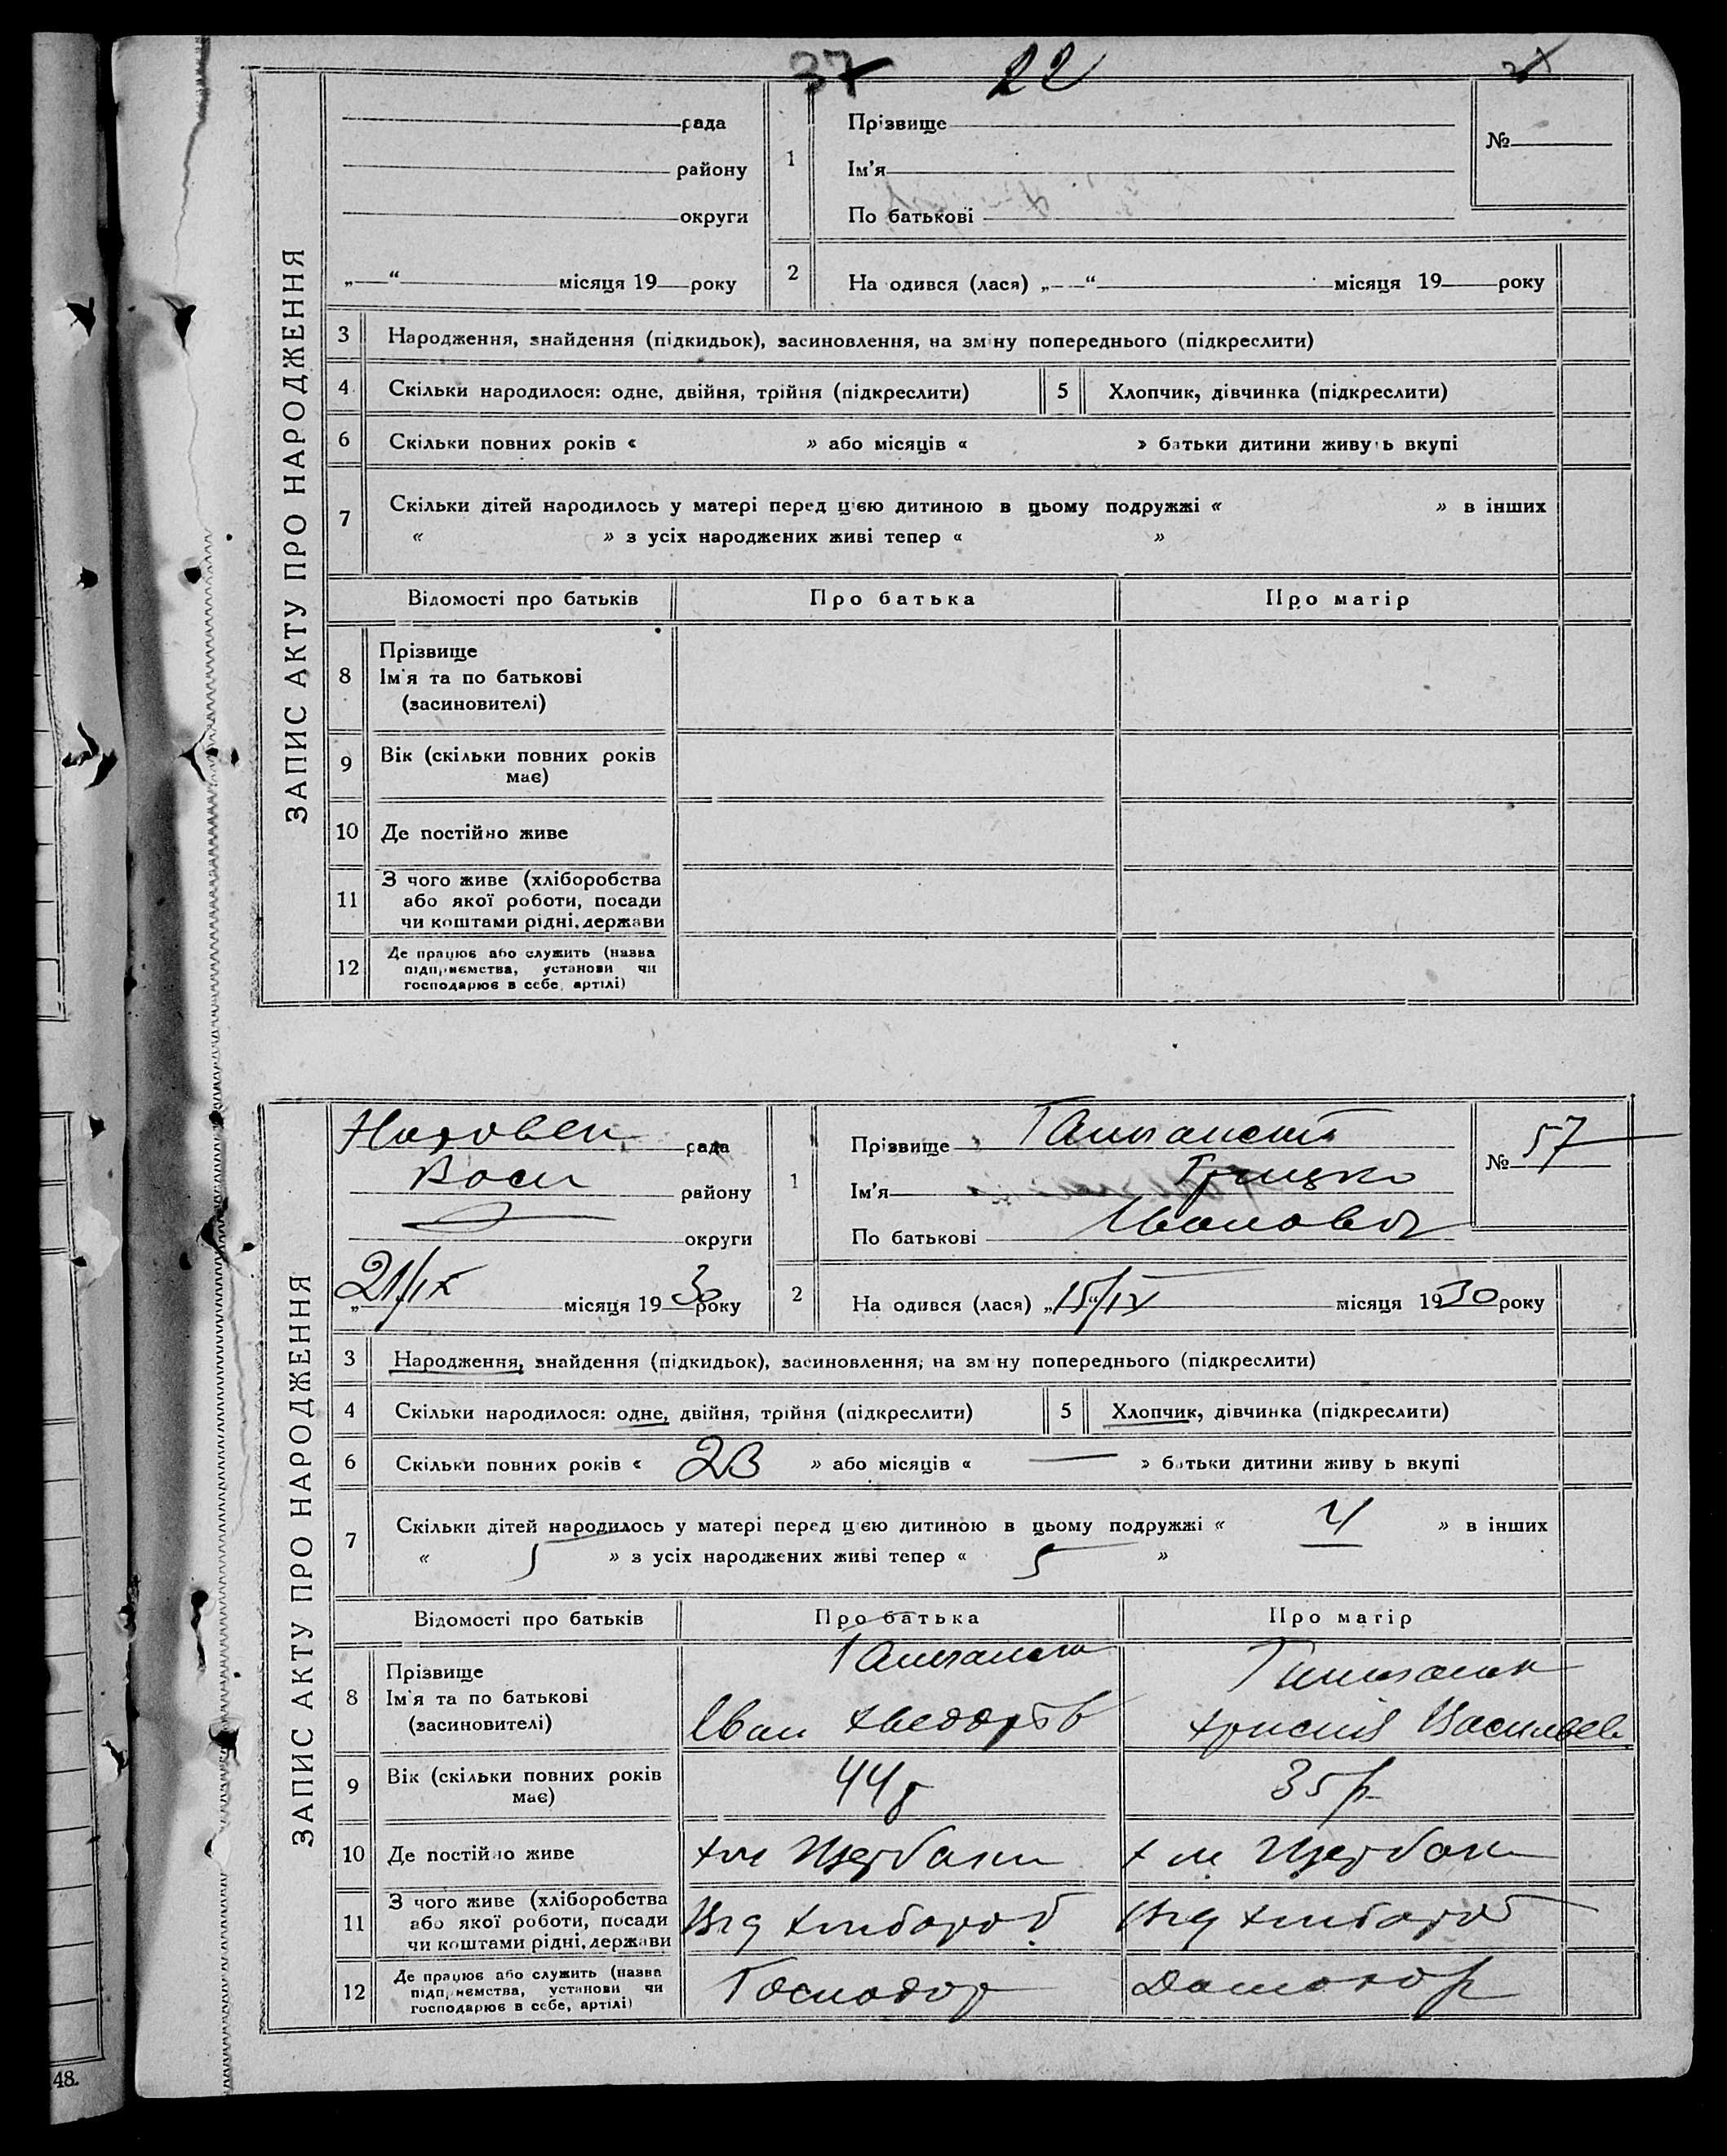 37 22
рада
району
округи
„ “ місяця 19 року
1
Прізвище
Ім’я
По батькові
№
2
На одився (лася) „ “ місяця 19 року
ЗАПИС АКТУ ПРО НАРОДЖЕННЯ
3 Народження, знайдення (підкидьок), засиновлення, на зм ну попереднього (підкреслити)
4 Скільки народилося: одне, двійня, трійня (підкреслити) 5 Хлопчик, дівчинка (підкреслити)
6 Скільки повних років « » або місяців « » батьки дитини живуть вкупі
7 Скільки дітей народилось у матері перед цією дитиною в цьому подружжі « » в інших
« » з усіх народжених живі тепер « »
Відомості про батьків Про батька Про матір
8 Прізвище
Ім’я та по батькові
(засиновителі)
9 Вік (скільки повних років
має)
10 Де постійно живе
11 З чого живе (хліборобства
або якої роботи, посади
чи коштами рідні, держави
12 Де працює або служить (назва
підприємства, установи чи
господарює в себе, артілі)
рада
району
округи
21/IX місяця 1930 року
1
Прізвище
Ім’я Грицко
По батькові Іванович
№ 57
2
На одився (лася) „15/IX місяця 1930 року
ЗАПИС АКТУ ПРО НАРОДЖЕННЯ
3 Народження, знайдення (підкидьок), засиновлення, на зм ну попереднього (підкреслити)
4 Скільки народилося: одне, двійня, трійня (підкреслити) 5 Хлопчик, дівчинка (підкреслити)
6 Скільки повних років « 23 » або місяців « — » батьки дитини живу ь вкупі
7 Скільки дітей народилось у матері перед цією дитиною в цьому подружжі « 4 » в інших
« » з усіх народжених живі тепер « 5 »
Відомості про батьків Про батька Про матір
8 Прізвище
Ім’я та по батькові
(засиновителі)
Іван Хведоров
Васильев
9 Вік (скільки повних років
має)
44р 35р
10 Де постійно живе хт Щербаки хт Щербаки
11 З чого живе (хліборобства
або якої роботи, посади
чи коштами рідні, держави
Від хлибороб Від хлибороб
12 Де працює або служить (назва
підприємства, установи чи
господарює в себе, артілі)
Господор Домогор
48.